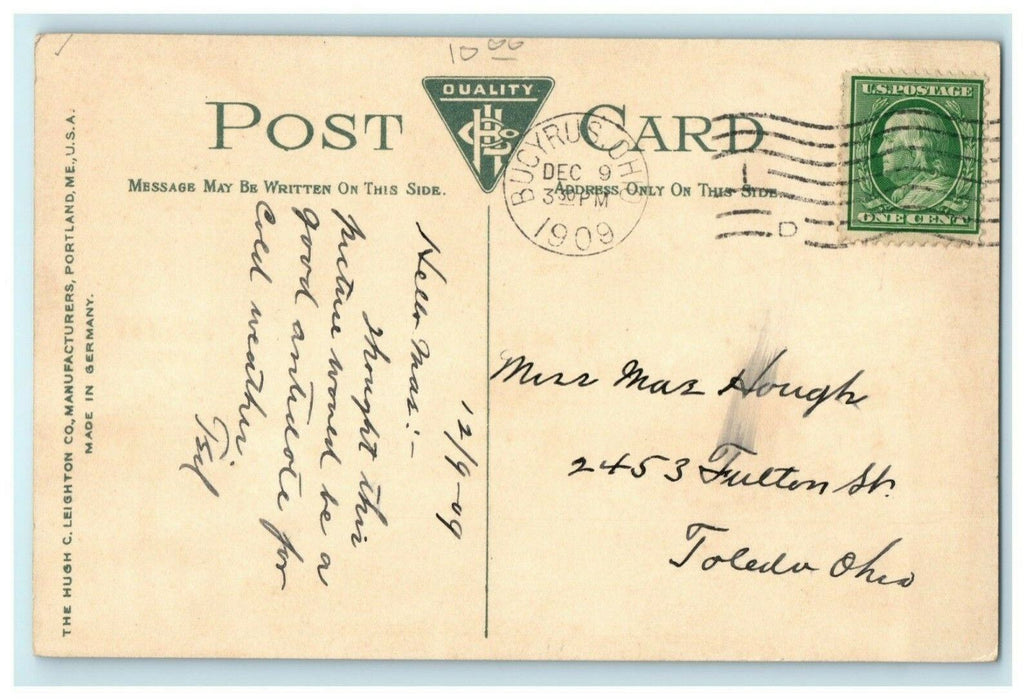 10 00
POST CARD
QUALITY
U.S. POSTAGE
ONE CENT
MESSAGE MAY BE WRITTEN ON THIS SIDE.
ADDRESS ONLY ON THIS SIDE.
BUCYRUS, OHIO
DEC 9
3 30 PM
1909
D
THE HUGH C. LEIGHTON CO., MANUFACTURERS, PORTLAND, ME., U.S.A.
MADE IN GERMANY.
12/9-09
Hello Mae:-
Thought this
picture would be a
good antidote for
Cold weather
Miss Mae Hough
2453 Fulton St.
Toledo Ohio